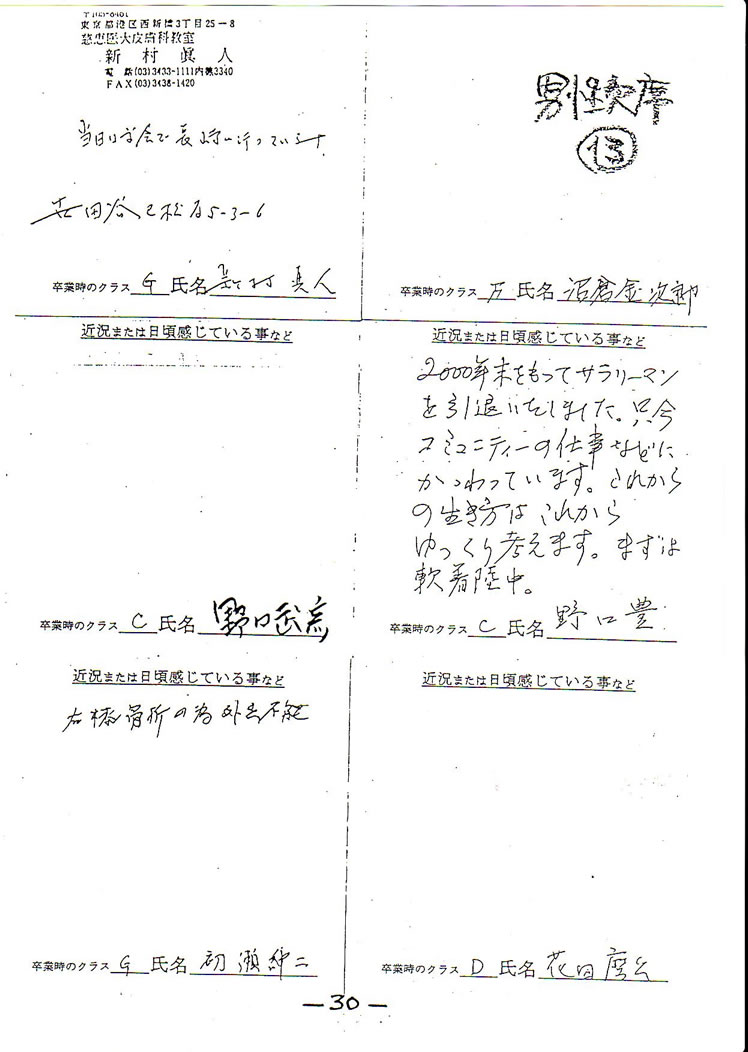 東京都港区西新橋3丁目25-8
慈恵医大皮膚科教室
新村眞人
電話(03)3433-1111内線3340
FAX(03)3438-1420
当日は学会で長崎に行っています
世田谷区松原5-3-6
卒業時のクラス G 氏名 新村真人
男性欠席
13
卒業時のクラス F 氏名 沼倉金次郎
近況または日頃感じている事など
卒業時のクラス C 氏名 野口
近況または日頃感じている事など
2000年末をもってサラリーマン
を引退いたしました。只今
コミュニティーの仕事などに
かかわっています。これから
の生き方はこれから
ゆっくり考えます。まずは
軟着陸中。
卒業時のクラス C 氏名 野口豊
近況または日頃感じている事など
右 骨折の為外出不能
卒業時のクラス G 氏名 初瀬 二
近況または日頃感じている事など
卒業時のクラス D 氏名 花田
-30-